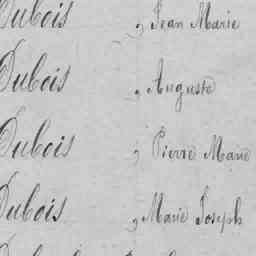 Dubois , Jean Marie
Dubois , Auguste
Dubois , Pierre Marie
Dubois , Marie Joseph